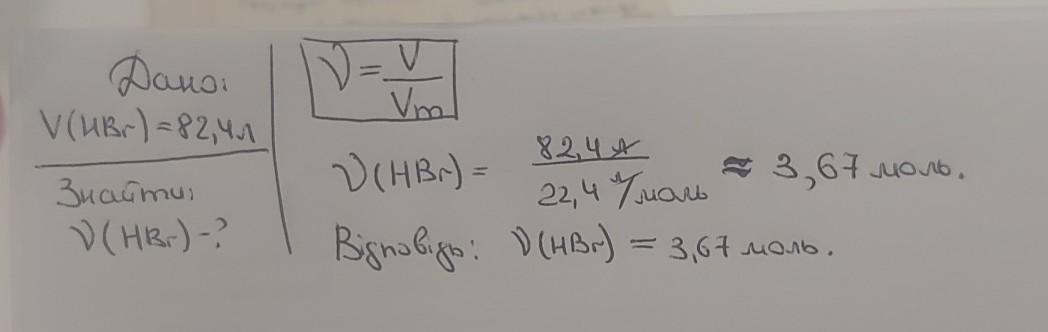 Дано:
V(HBr)=82,4л
Знайти:
ν(HBr)-?
ν = V/Vm
ν(HBr) = 82,4 л / 22,4 л/моль ≈ 3,67 моль.
Відповідь: ν(HBr) = 3,67 моль.